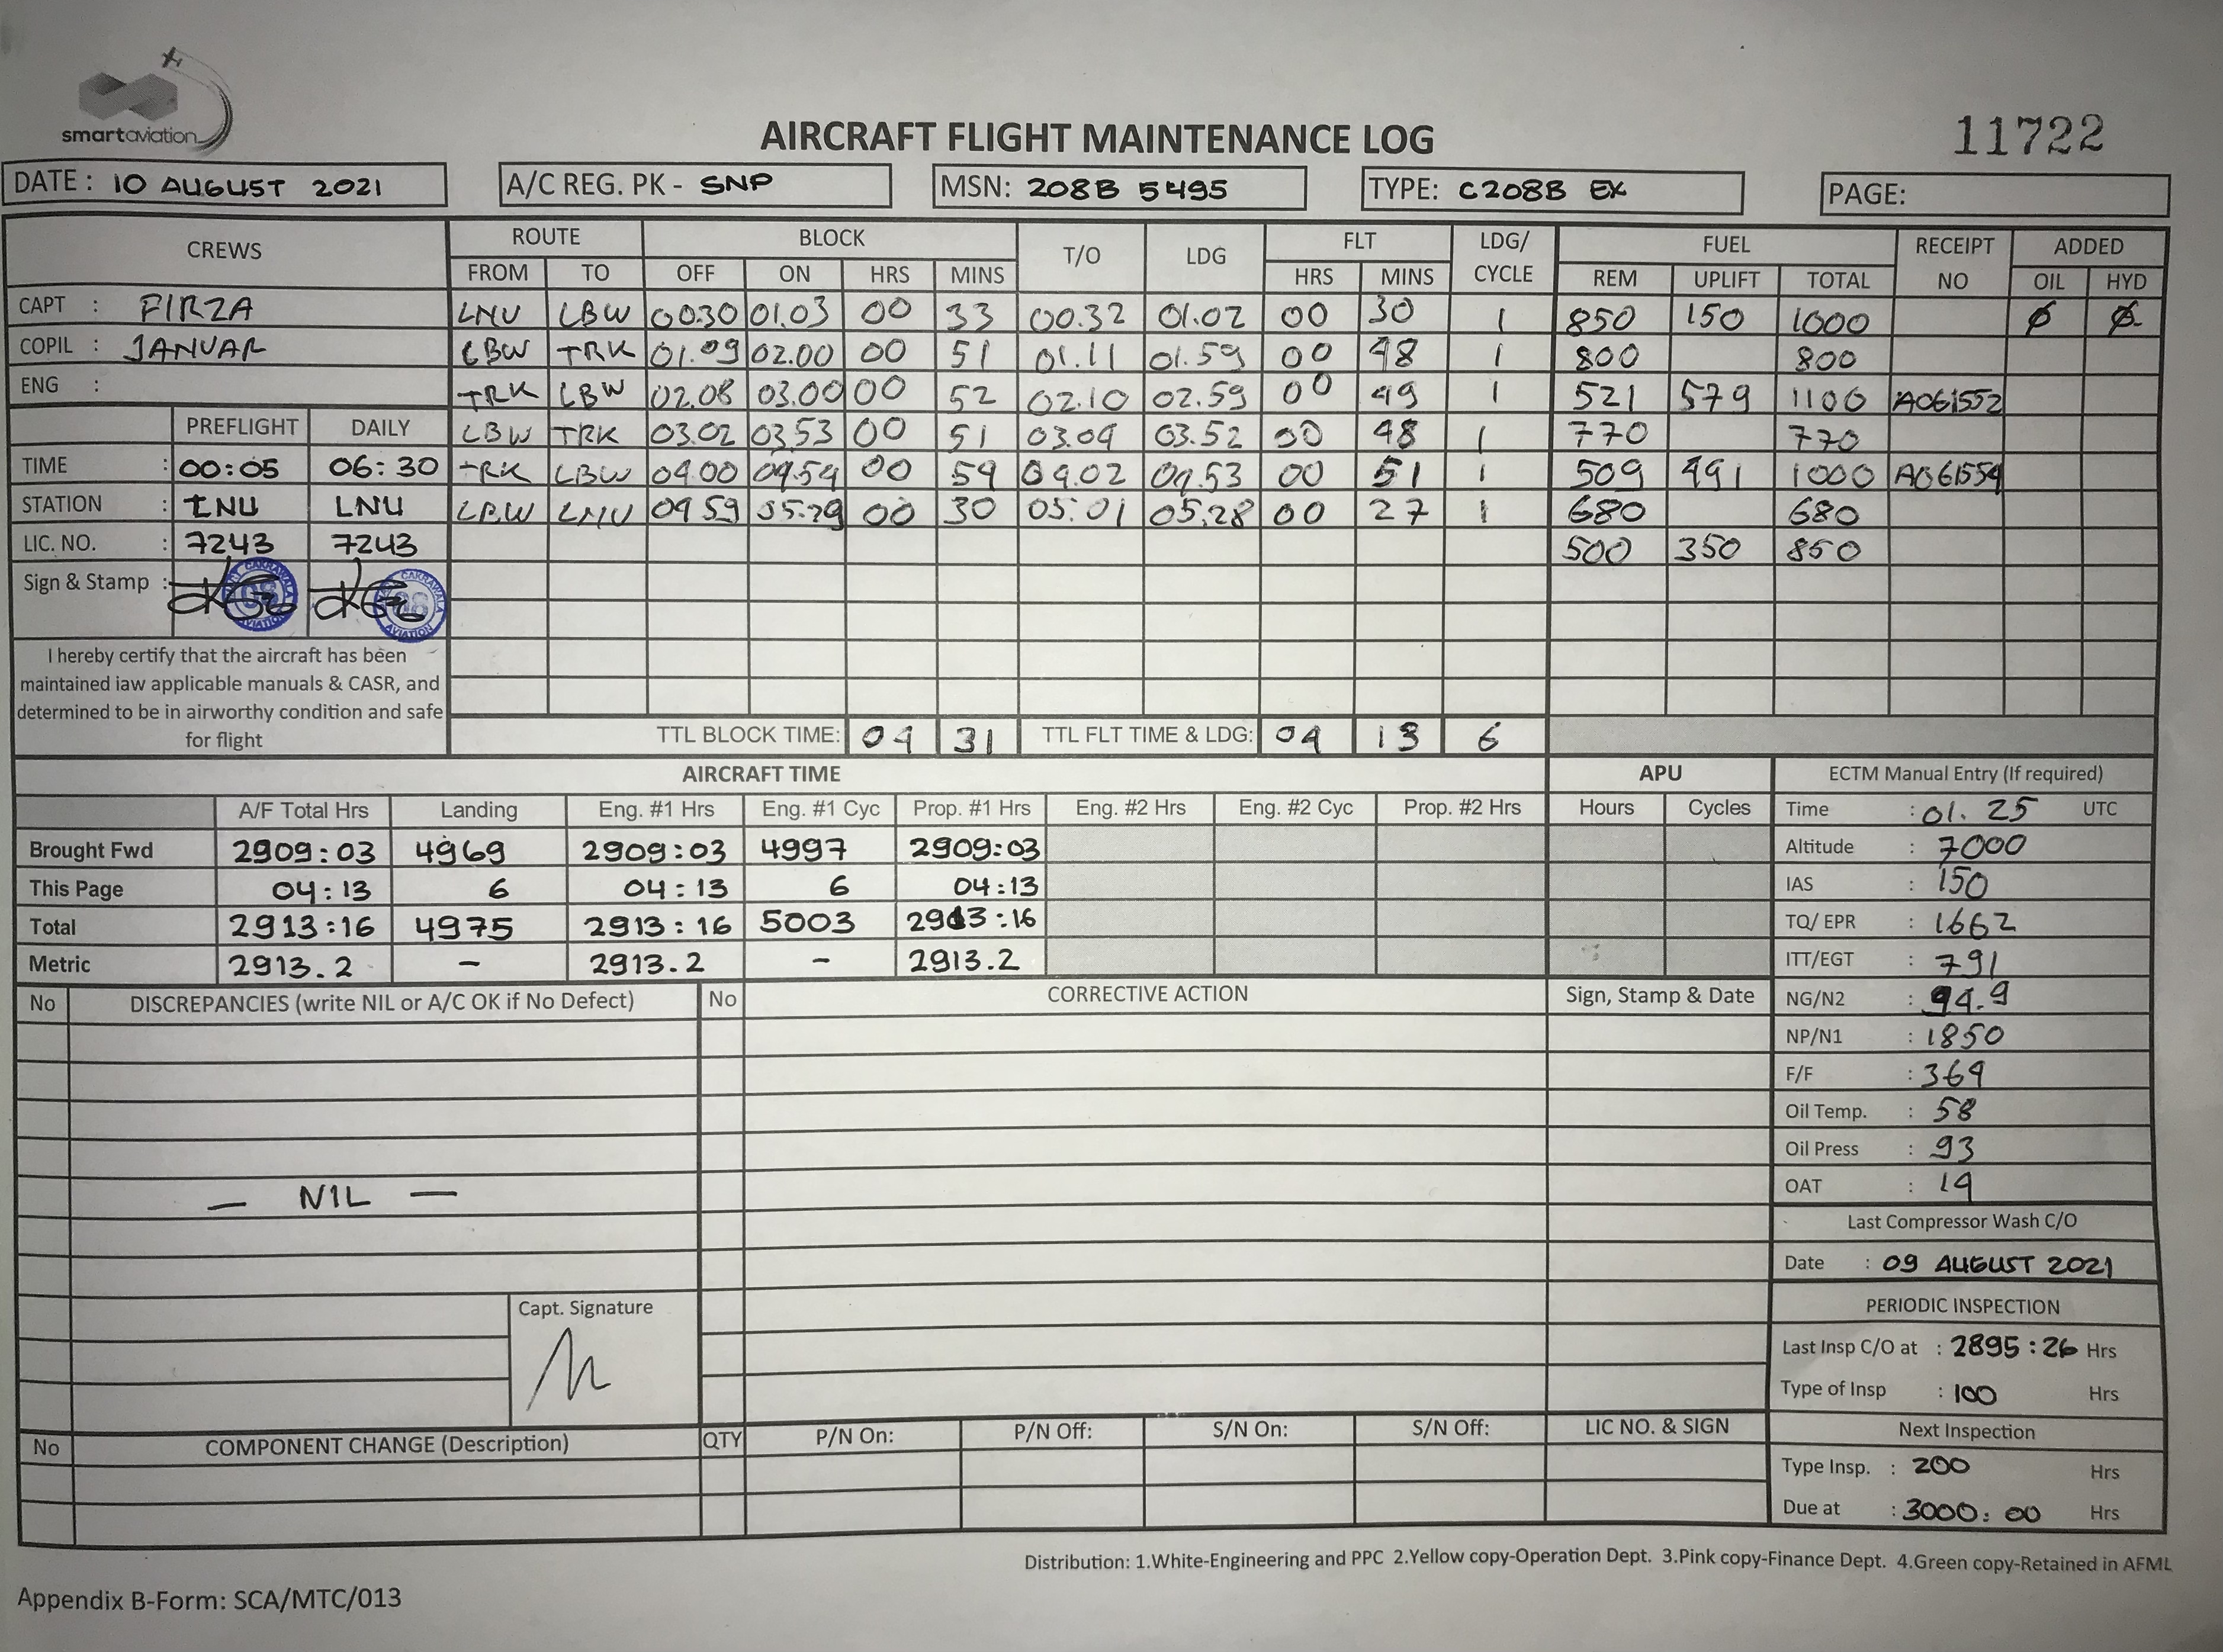 smartaviation
AIRCRAFT FLIGHT MAINTENANCE LOG
11722
DATE : 10 AUGUST 2021
A/C REG. PK - SNP
MSN: 208B 5495
TYPE: C208B EX
PAGE:
CREWS ROUTE BLOCK T/O LDG FLT LDG/ CYCLE FUEL RECEIPT NO ADDED
FROM TO OFF ON HRS MINS HRS MINS REM UPLIFT TOTAL OIL HYD
CAPT : FIRZA LNU LBW 0030 01.03 00 33 00.32 01.02 00 30 1 850 150 1000 Ø Ø
COPIL : JANUAR LBW TRK 01.09 02.00 00 51 01.11 01.59 00 48 1 800 800
ENG : TRK LBW 02.08 03.00 00 52 02.10 02.59 00 49 1 521 579 1100 A061552
PREFLIGHT DAILY LBW TRK 03.02 03.53 00 51 03.04 03.52 00 48 1 770 770
TIME : 00:05 06:30 TRK LBW 04.00 04.54 00 54 04.02 04.53 00 51 1 509 491 1000 A061554
STATION : LNU LNU LBW LNU 04 59 05.29 00 30 05.01 05.28 00 27 1 680 680
LIC. NO. : 7243 7243 500 350 850
Sign & Stamp :
CAKRAWALA 08 AVIATION
CAKRAWALA 08 AVIATION
I hereby certify that the aircraft has been
maintained iaw applicable manuals & CASR, and
determined to be in airworthy condition and safe
for flight
TTL BLOCK TIME: 04 31 TTL FLT TIME & LDG: 04 13 6
AIRCRAFT TIME APU
A/F Total Hrs Landing Eng. #1 Hrs Eng. #1 Cyc Prop. #1 Hrs Eng. #2 Hrs Eng. #2 Cyc Prop. #2 Hrs Hours Cycles
Brought Fwd 2909:03 4969 2909:03 4997 2909:03
This Page 04:13 6 04:13 6 04:13
Total 2913:16 4975 2913:16 5003 2913:16
Metric 2913.2 - 2913.2 - 2913.2
ECTM Manual Entry (If required)
Time : 01.25 UTC
Altitude : 7000
IAS : 150
TQ/ EPR : 1662
ITT/EGT : 791
NG/N2 : 94.9
NP/N1 : 1850
F/F : 364
Oil Temp. : 58
Oil Press : 93
OAT : 14
Last Compressor Wash C/O
Date : 09 AUGUST 2021
PERIODIC INSPECTION
Last Insp C/O at : 2895:26 Hrs
Type of Insp : 100 Hrs
Next Inspection
Type Insp. : 200 Hrs
Due at : 3000:00 Hrs
No DISCREPANCIES (write NIL or A/C OK if No Defect) No CORRECTIVE ACTION Sign, Stamp & Date
— NIL —
Capt. Signature
No COMPONENT CHANGE (Description) QTY P/N On: P/N Off: S/N On: S/N Off: LIC NO. & SIGN
Distribution: 1.White-Engineering and PPC 2.Yellow copy-Operation Dept. 3.Pink copy-Finance Dept. 4.Green copy-Retained in AFML
Appendix B-Form: SCA/MTC/013